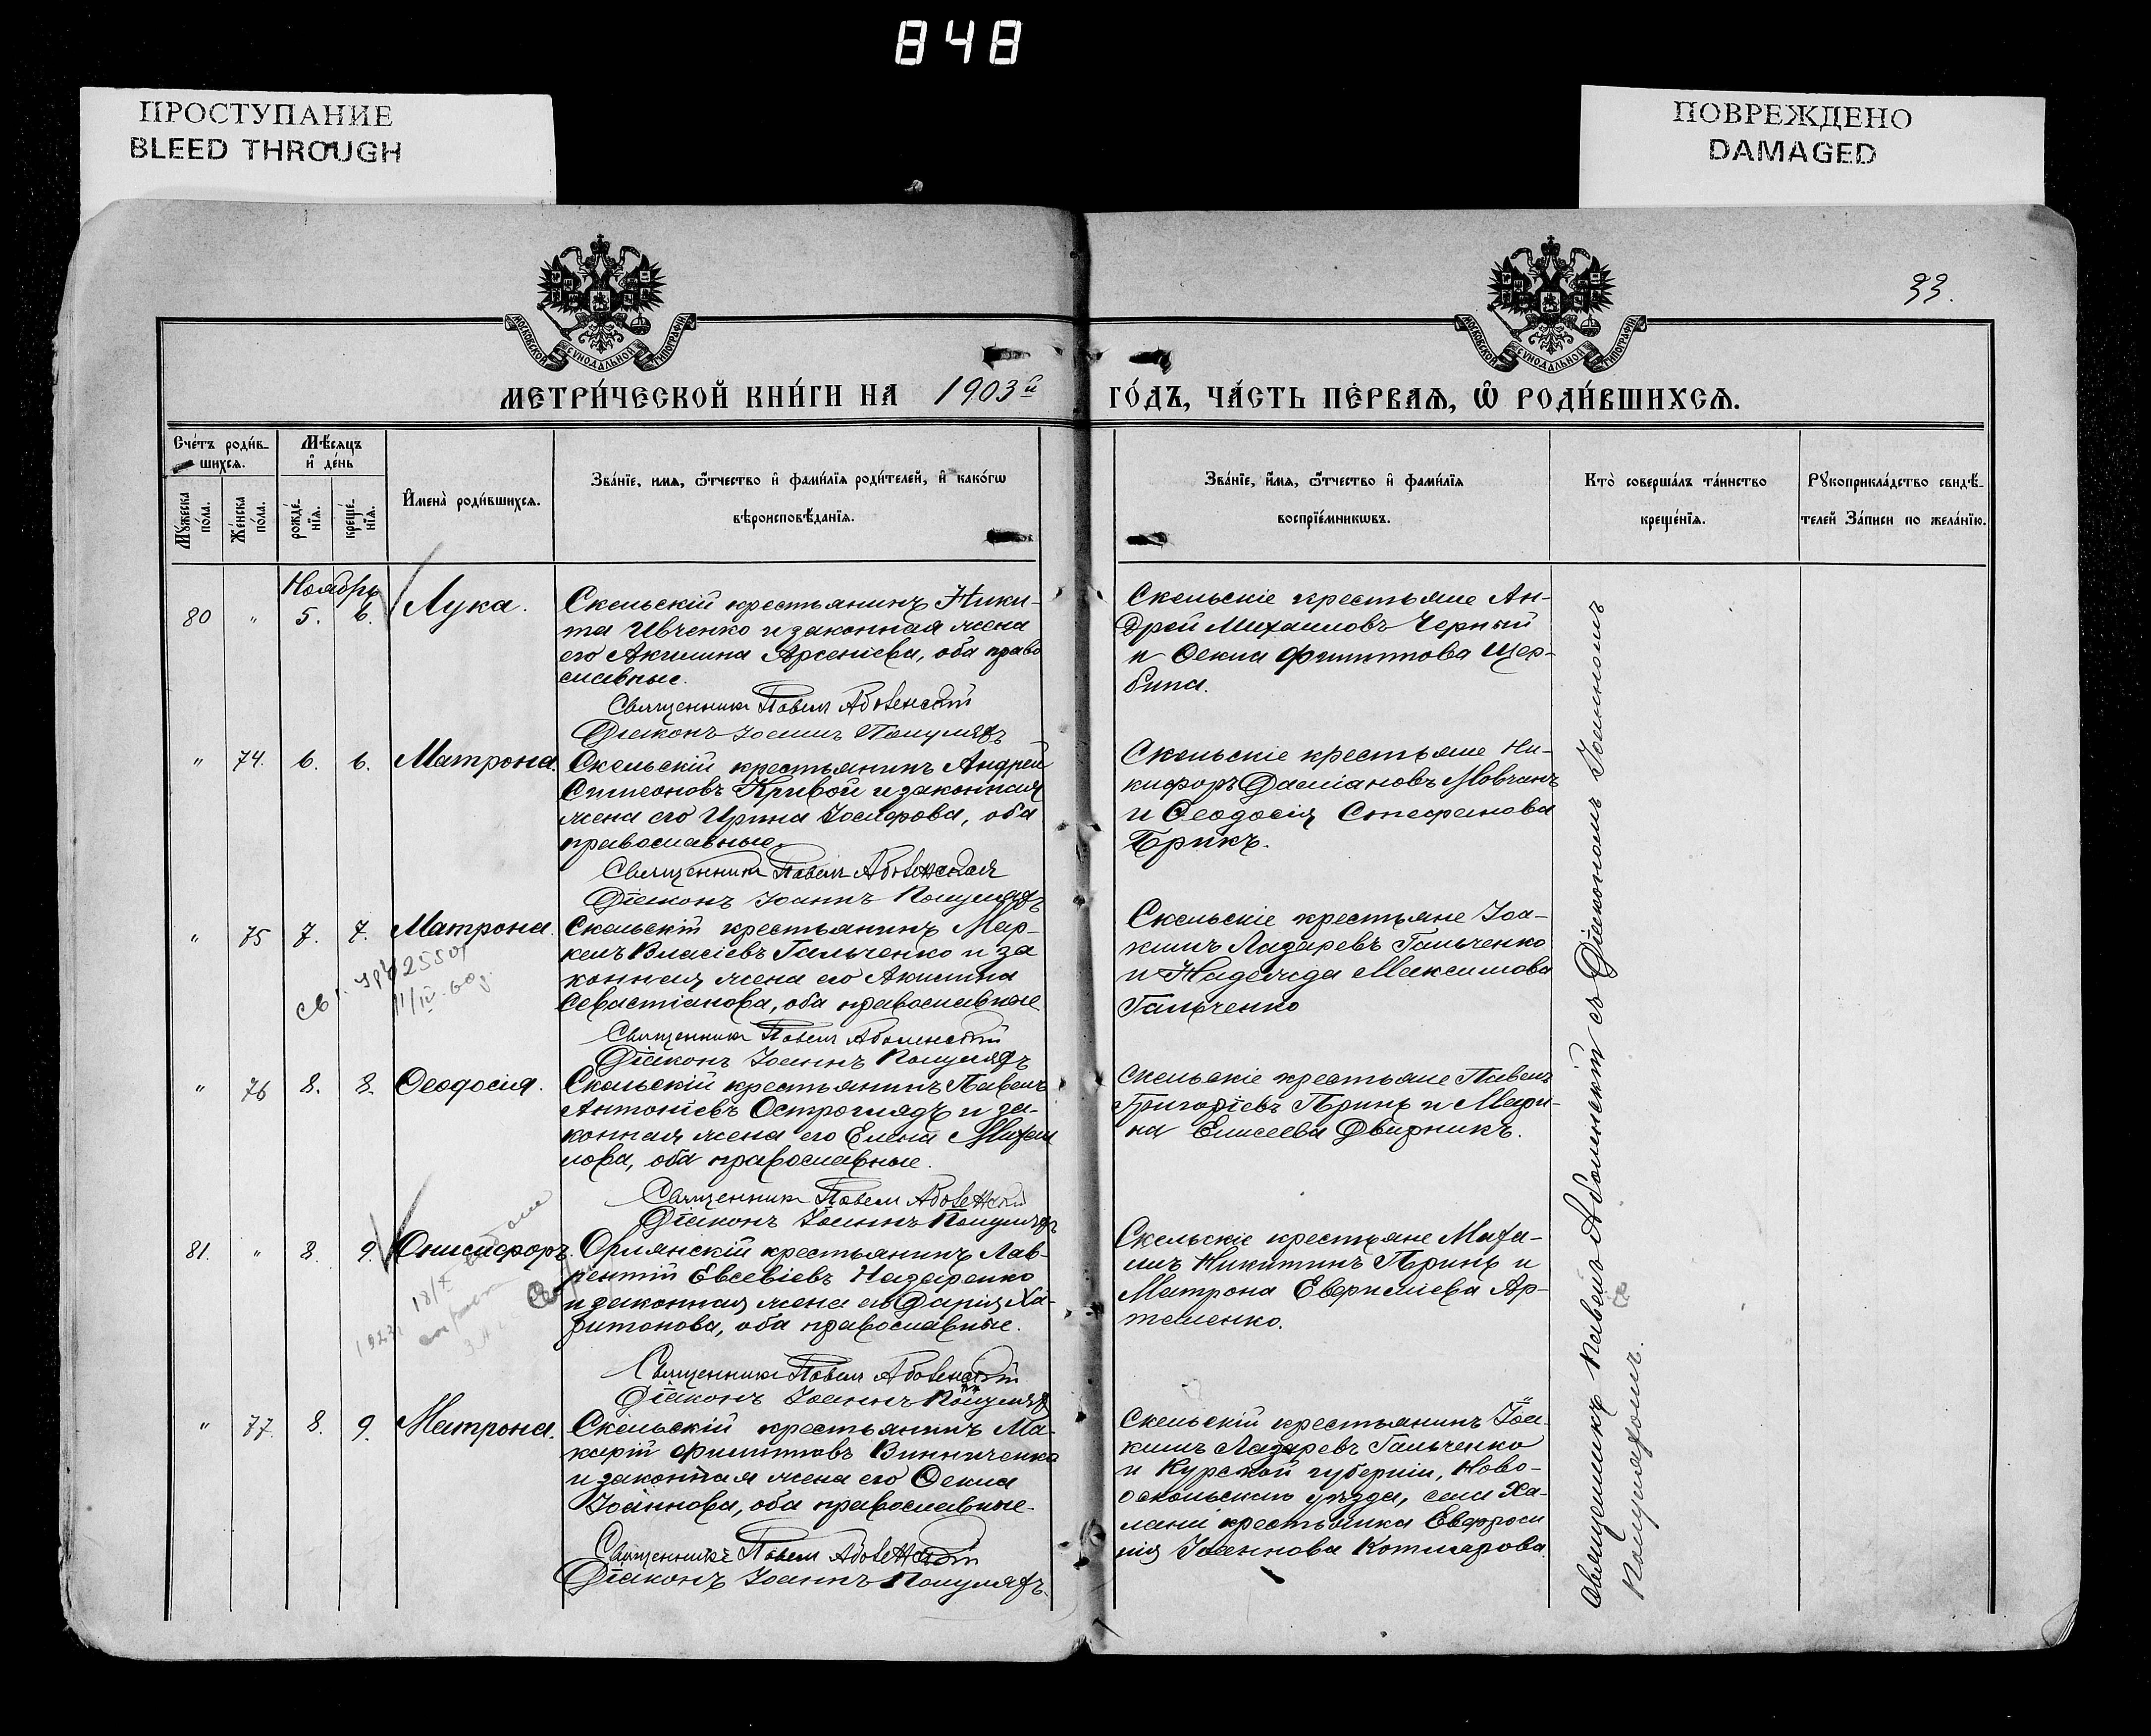 848
ПРОСТУПАНИЕ
BLEED THROUGH
ПОВРЕЖДЕНО
DAMAGED
33.
МОСКОВСКОЙ СѴНОДАЛЬНОЙ ТИПОГРАФІИ
МОСКОВСКОЙ СѴНОДАЛЬНОЙ ТИПОГРАФІИ
МЕТРИ́ЧЕСКОЙ КНИ́ГИ НА 1903й ГО́ДЪ, ЧА́СТЬ ПЕ́РВАѦ, Ѡ҆ РОДИ́ВШИХСѦ.
Сче́тъ роди́в-
шихсѧ.
Мѣ́сѧцъ
и҆ де́нь
Мꙋ́жеска по́ла.
Же́нска по́ла.
рожде́-
нїѧ.
креще́-
нїѧ.
И҆мена̀ роди́вшихсѧ.
Зва́нїе, имѧ, ѻ҆́тчество и҆ фами́лїѧ роди́телей, и҆ како́гѡ
вѣроисповѣ́данїѧ.
Зва́нїе, и҆́мѧ, ѻ҆́тчество и҆ фами́лїѧ
воспрїе́мникѡвъ.
Кто̀ соверша́лъ та́инство
креще́нїѧ.
Рꙋкоприкла́дство свидѣ́-
телей За́писи по жела́нїю.
Ноябрь
80 " 5. 6. Лука.
Скельскій крестьянинъ Ники-
та Ивченко и законная жена
его Акилина Арсеніева, оба право
славные.
Священникъ Павелъ Аболенскій
Діаконъ Іоаннъ
Скельскіе крестьяне Ан-
дрей Михаиловъ Черный
и Ѳекла Филиппова Щер-
бина.
" 74. 6. 6. Матрона.
Скельскій крестьянинъ Андрей
Симеоновъ Кривой и законная
жена его Ирина Іосифова, оба
православные.
Священникъ Павелъ Аболенскій
Діаконъ Іоаннъ
Скельскіе крестьяне Ни-
кифоръ Даміановъ Мовчанъ
и Ѳеодосія Стефанова
Брикъ.
" 75 7. 7. Матрона.
Скельскій крестьянинъ Мар-
келъ Власіевъ Гальченко и за
конная жена его Акилина
Севастіанова, оба православные
Священникъ Павелъ Аболенскій
Діаконъ Іоаннъ
Скельскіе крестьяне Іоа-
кимъ Лазаревъ Гальченко
и Надежда Максимова
Гальченко
11/IV 60г.
" 76 8. 8. Ѳеодосія.
Скельскій крестьянинъ Павелъ
Антоніевъ Остроглядъ и за-
конная жена его Елена Михаи
лова, оба православные.
Священникъ Павелъ Аболенскій
Діаконъ Іоаннъ
Скельскіе крестьяне Павелъ
Григоріевъ Принь и Мари-
на Елисеева Двирникъ.
81. " 8. 9. Онисифоръ.
Орлянскій крестьянинъ Лав-
рентій Евсевіевъ Назаренко
и законная жена его Дарія Ха-
ритонова, оба православные.
Священникъ Павелъ Аболенскій
Діаконъ Іоаннъ
Скельскіе крестьяне Миха-
илъ Никитинъ Принь и
Матрона Евфиміева Ар-
теменко.
" 77. 8. 9. Матрона.
Скельскій крестьянинъ Ма-
карій Филипповъ Винниченко
и законная жена его Ѳекла
Іоаннова, оба православные.
Священникъ Павелъ Аболенскій
Діаконъ Іоаннъ
Скельскій крестьянинъ Іоа-
кимъ Лазаревъ Гальченко
и Курской губерніи, Ново-
оскольскаго уѣзда, села Ха-
лани крестьянка Евфроси
нія Іоаннова Котлярова.
Священникъ Павелъ Аболенскій съ Діакономъ Іоанномъ